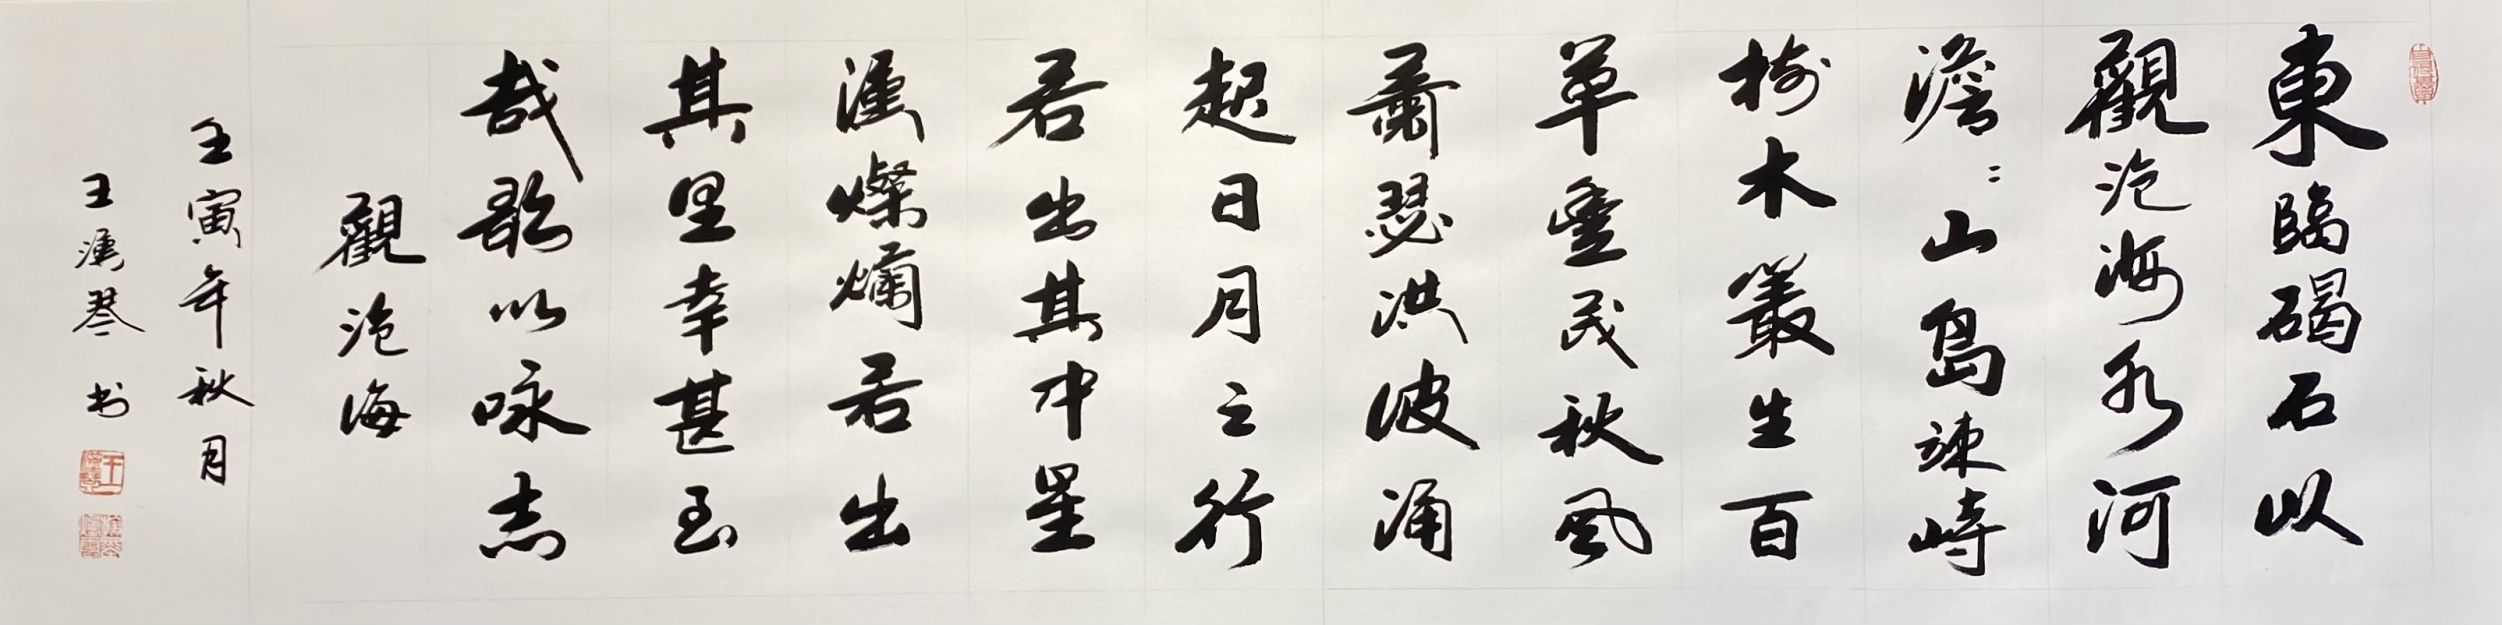 東臨碣石以
觀滄海水河
澹〻山島竦峙
樹木叢生百
草豐茂秋風
蕭瑟洪波涌
起日月之行
若出其中星
漢燦爛若出
其里幸甚至
哉歌以咏志
觀滄海
壬寅年秋月
王琴书